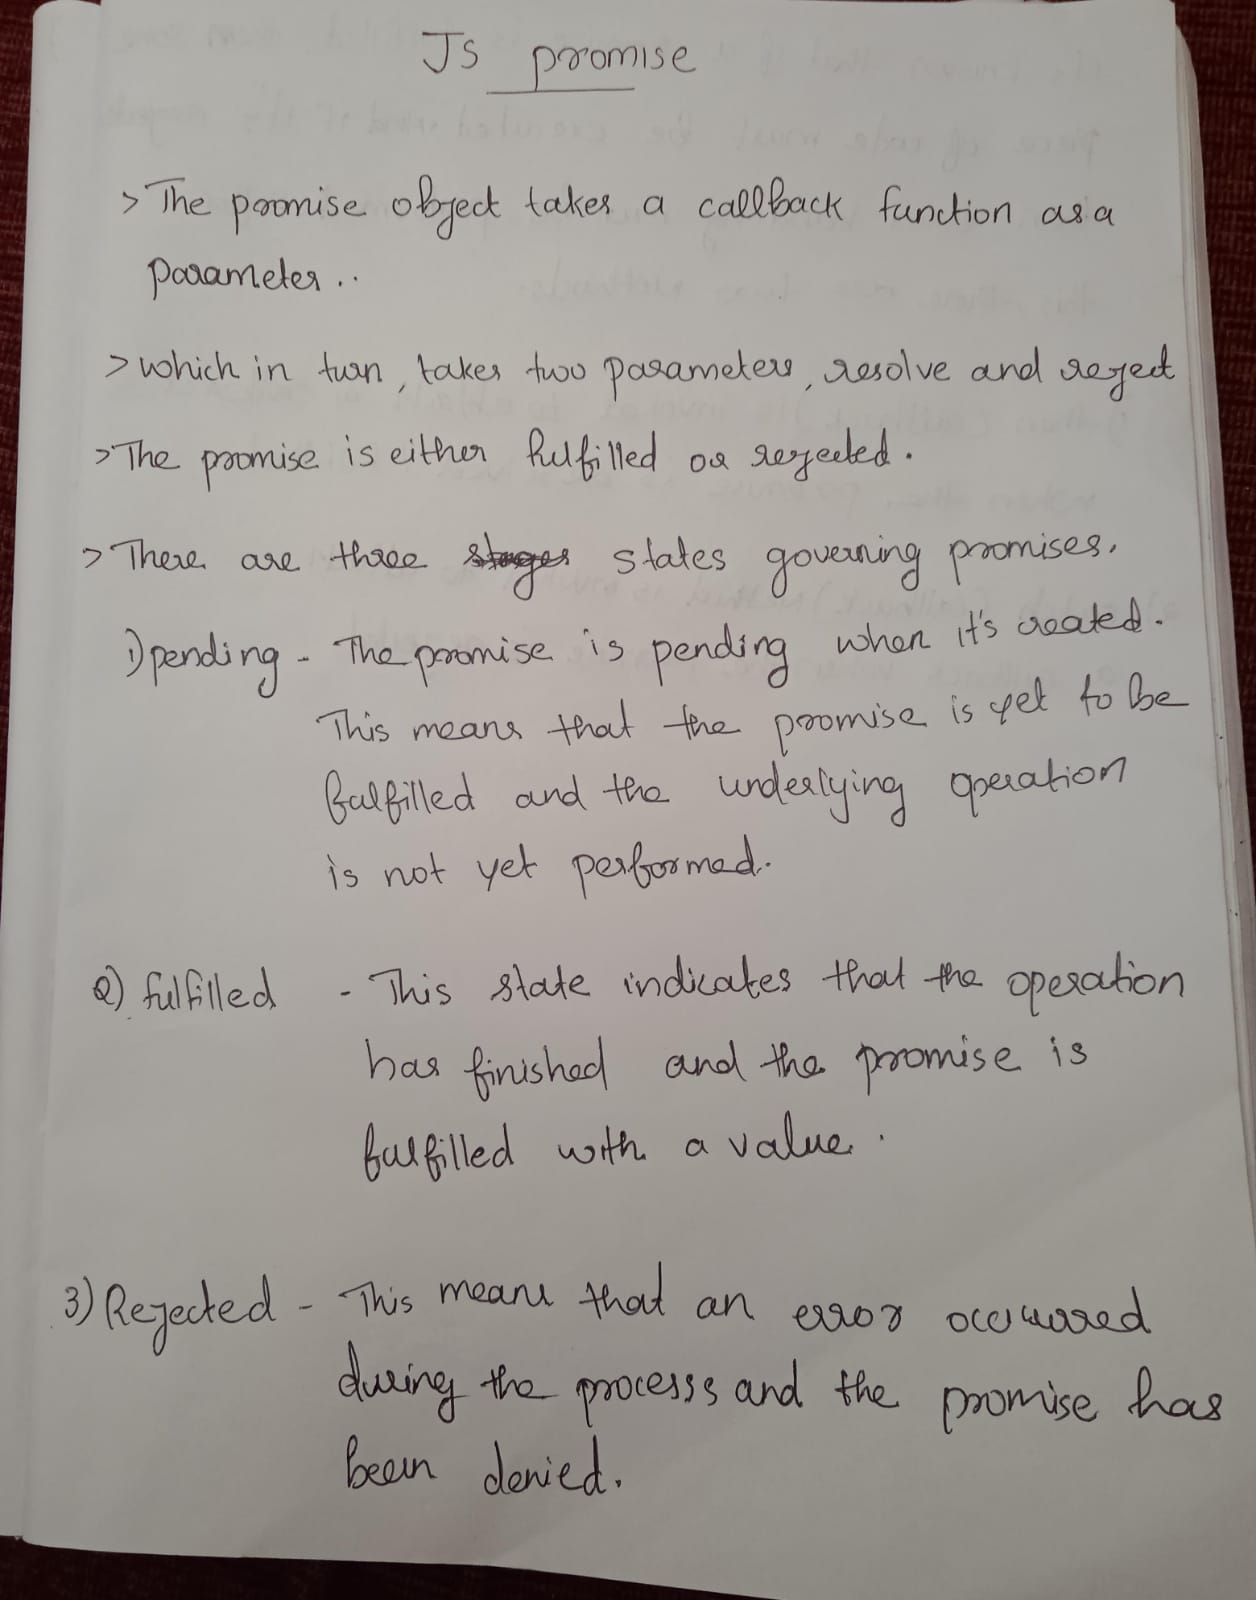 JS promise
> The promise object takes a callback function as a
parameter..
> which in turn, takes two parameters, resolve and reject
> The promise is either fulfilled or rejected.
> There are three stages states governing promises.
1) pending - The promise is pending when it's created.
This means that the promise is yet to be
fulfilled and the underlying operation
is not yet performed.
2) fulfilled - This state indicates that the operation
has finished and the promise is
fulfilled with a value.
3) Rejected - This means that an error occurred
during the process and the promise has
been denied.